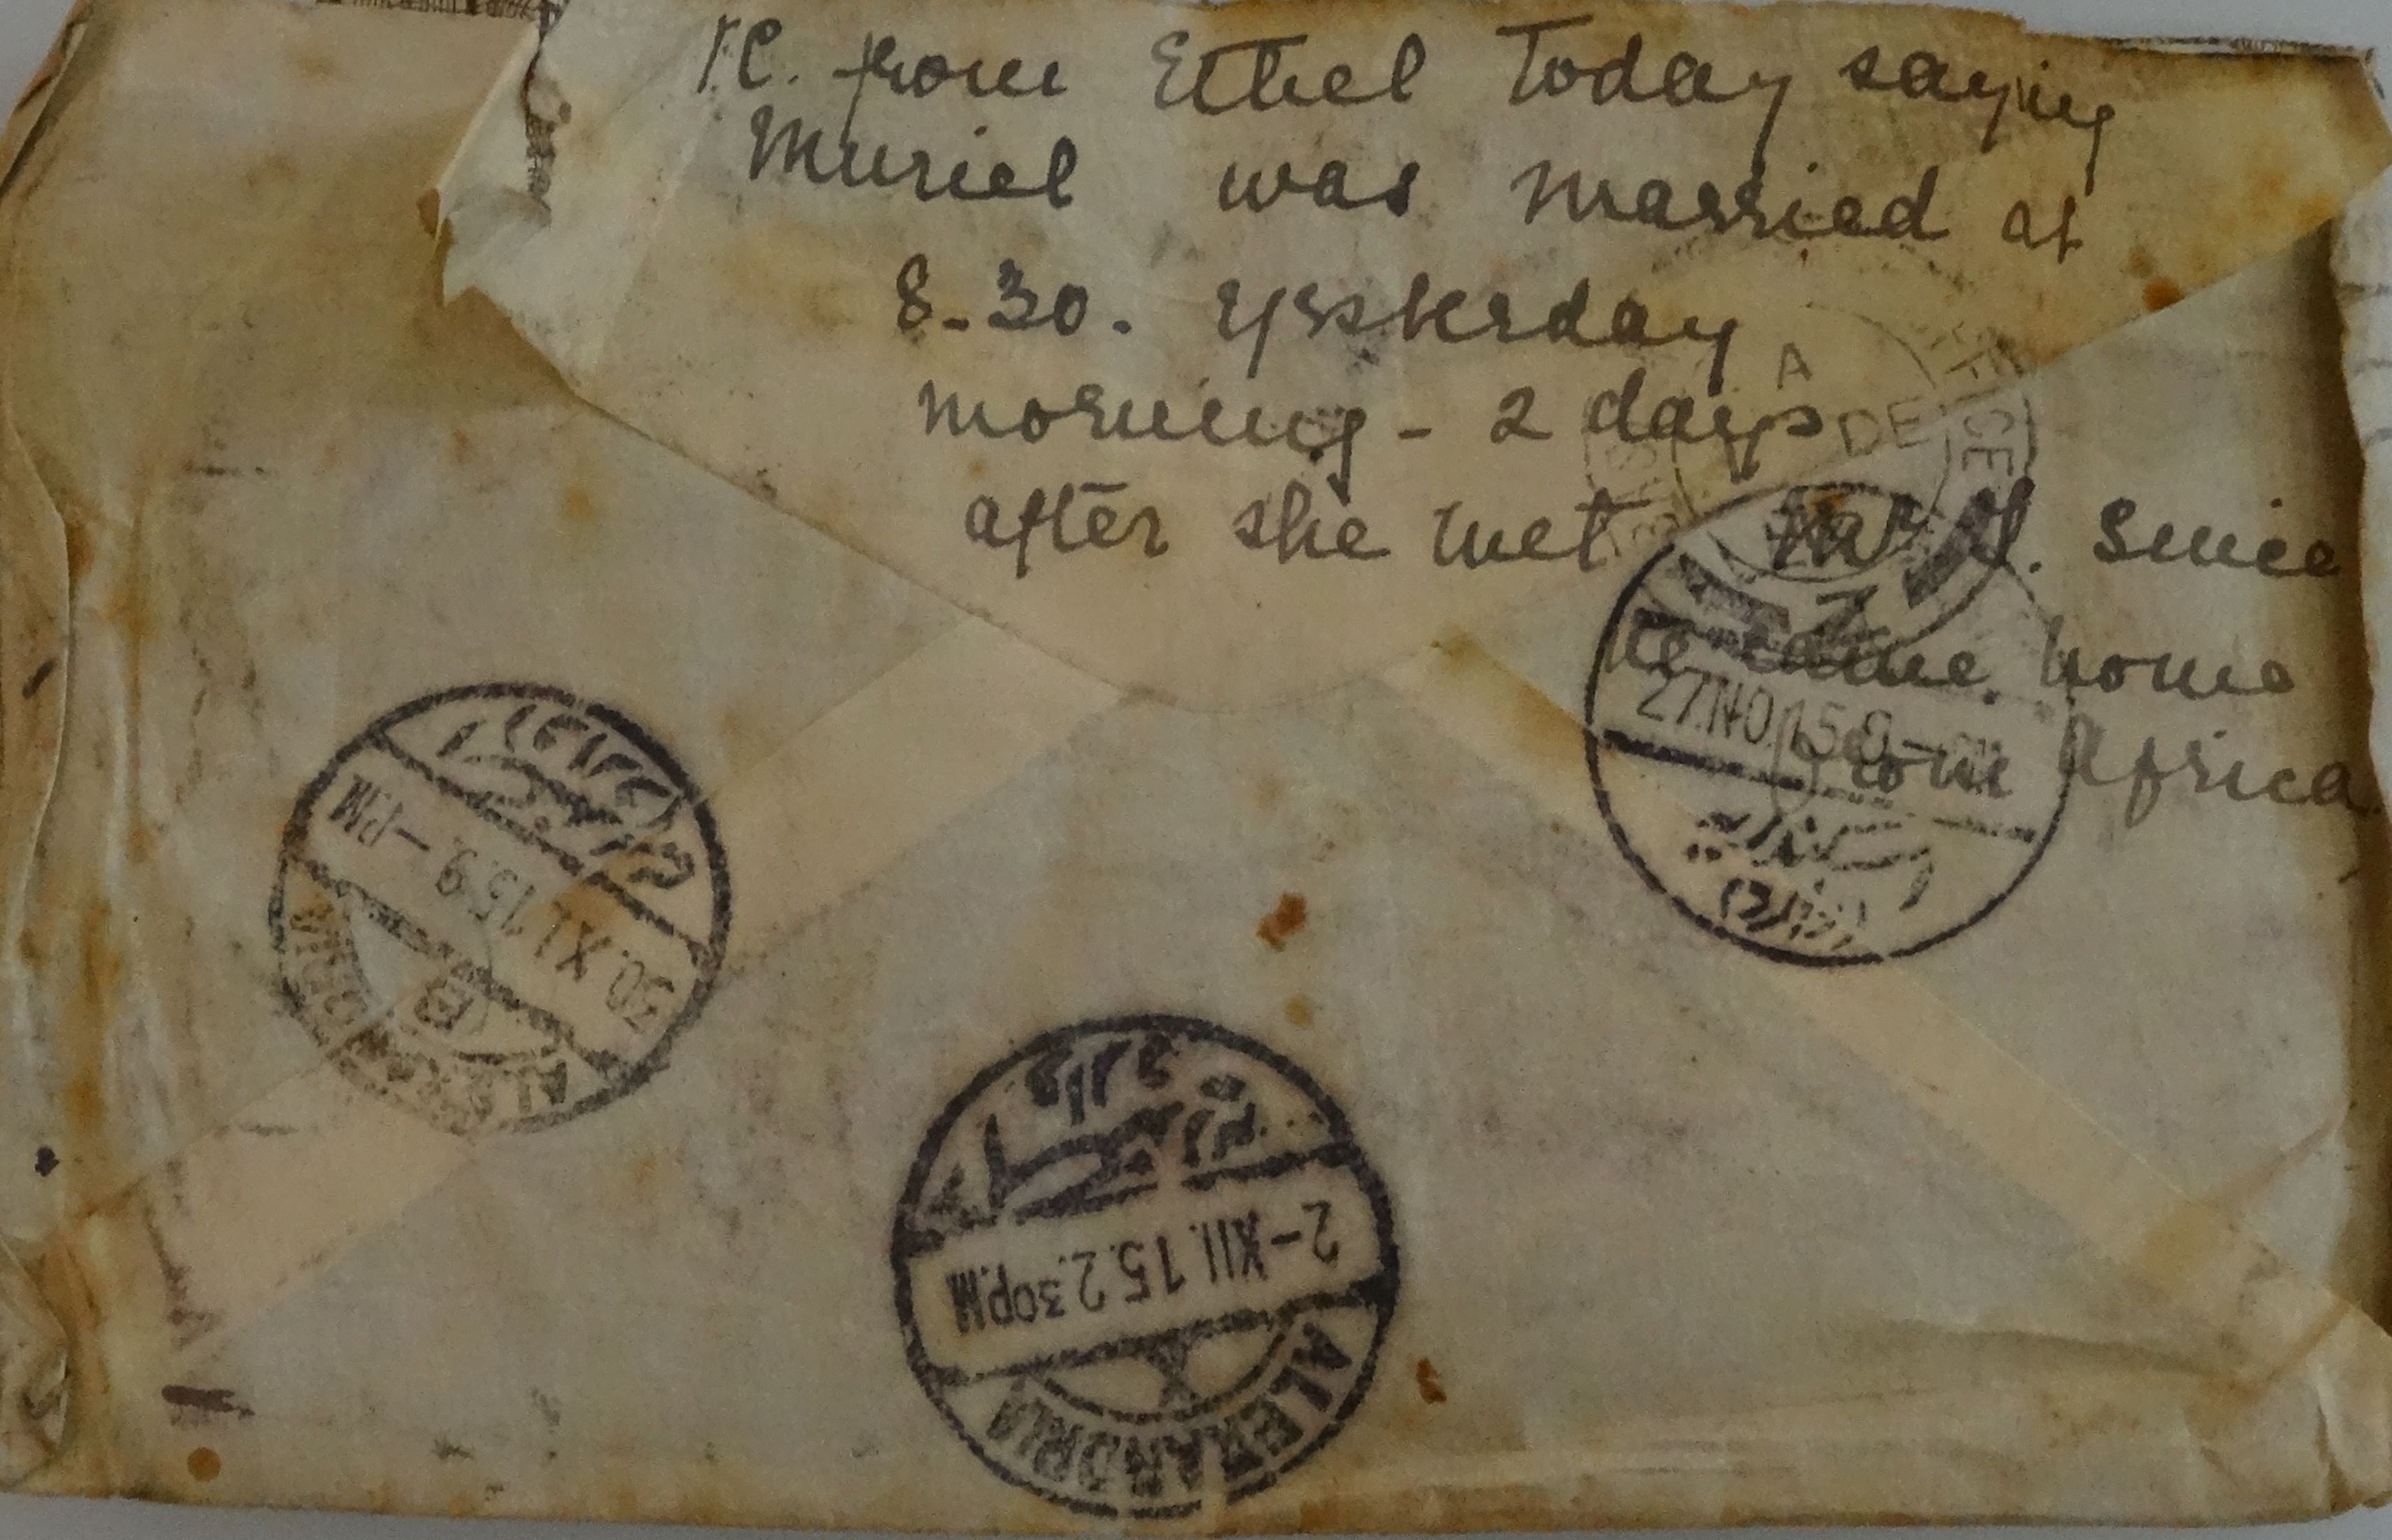 P.C. from Ethel Today saying
Muriel was married at
8-30. yesterday
morning - 2 days
after she met Mr J. Since
he came home
from Africa
A
DE
FFICE
27.NO.15.8-
30.XI.15.9.-PM
ALEXANDRIA
2-XII.15.2.30PM
ALEXANDRIA